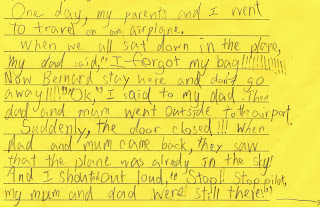 One day, my parents and I went
to travel on an airplane.
When we all sat down in the plane,
my dad said, "I forgot my bag!!!!!!!!!!!
Now Bernard stay here and don't go
away!!!!" "Ok," I said to my dad. Then
dad and mum went outside to the airport.
Suddenly, the door closed!!! When
dad and mum came back, they saw
that the plane was alredy in the sky!
And I shouted out loud, "Stop!! Stop pilot,
my mum and dad were still there!"